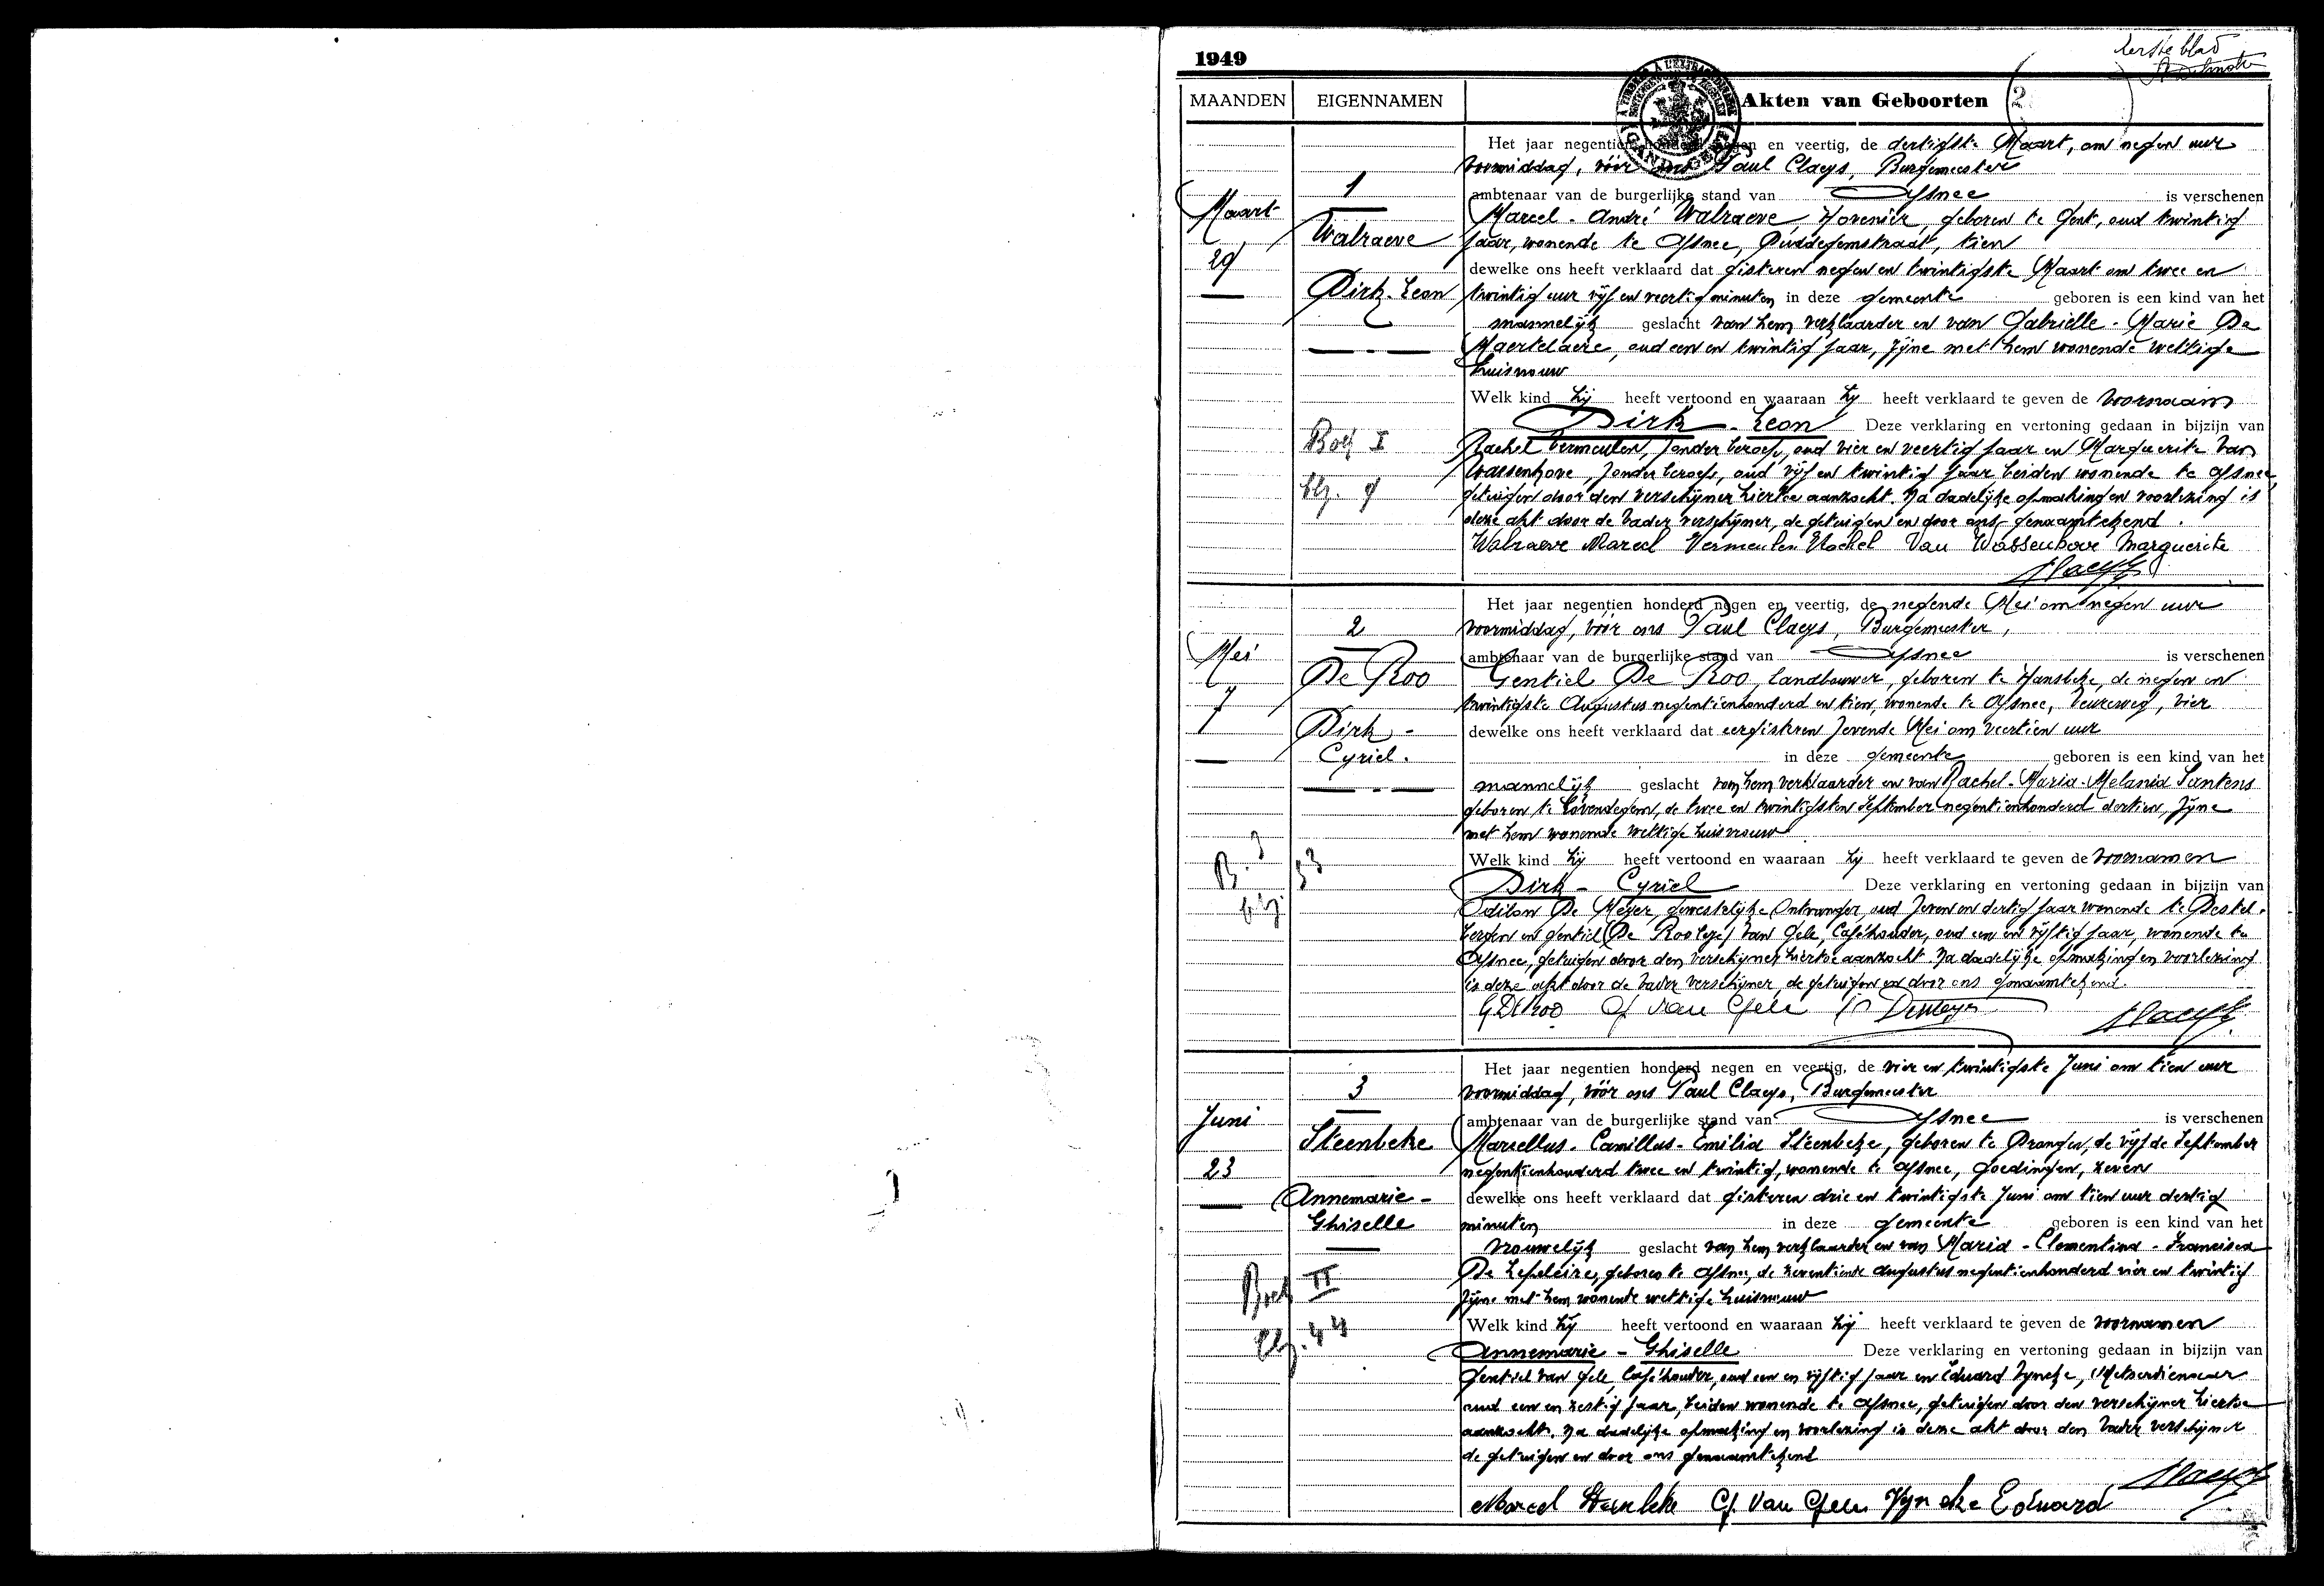 1949
Eerste blad
MAANDEN EIGENNAMEN Akten van Geboorten 2
Het jaar negentien honderd negen en veertig, de dertigste Maart, om negen uur
voormiddag, vóór ons Paul Claeys, Burgemeester
1
ambtenaar van de burgerlijke stand van Afsnee is verschenen
Maart
Marcel - André Walraeve, Hovenier, geboren te Gent, oud twintig
Walraeve
jaar, wonende te Afsnee, Duddegemstraat, tien
29
dewelke ons heeft verklaard dat gisteren negen en twintigste Maart om twee en
Dirk - Leon
twintig uur vijf en veertig minuten in deze gemeente geboren is een kind van het
mannelijk geslacht van hem verklaarder en van Gabrielle - Marie De
Maertelaere, oud een en twintig jaar, zijne met hem wonende wettige
huisvrouw
Welk kind hij heeft vertoond en waaraan hij heeft verklaard te geven de voornaam
Dirk - Leon Deze verklaring en vertoning gedaan in bijzijn van
Boek I
Rachel Vermeulen, zonder beroep, oud vier en veertig jaar en Marguerite Van
Wassenhove, zonder beroep, oud vijf en twintig jaar beiden wonende te Afsnee,
blz. 9
getuigen door den verschijner hiertoe aanzocht. Na dadelijke opmaking en voorlezing is
deze akt door de vader verschijner, de getuigen en door ons genaamtekend.
Walraeve Marcel Vermeulen Rachel Van Wassenhove Marguerite
Claeys
Het jaar negentien honderd negen en veertig, de negende Mei om negen uur
2
voormiddag, vóór ons Paul Claeys, Burgemeester,
Mei
ambtenaar van de burgerlijke stand van Afsnee is verschenen
De Roo
Gentiel De Roo, landbouwer, geboren te Hansbeke, de negen en
7
twintigste Augustus negentienhonderd en tien, wonende te Afsnee, Veureweg, vier
Dirk -
dewelke ons heeft verklaard dat eergisteren zevende Mei om veertien uur
Cyriel.
in deze gemeente geboren is een kind van het
mannelijk geslacht van hem verklaarder en van Rachel - Maria - Melania Santens
geboren te Lovendegem, de twee en twintigsten September negentienhonderd dertien, zijne
met hem wonende wettige huisvrouw
B. 3
blz. 53
Welk kind hij heeft vertoond en waaraan hij heeft verklaard te geven de voornamen
Dirk - Cyriel Deze verklaring en vertoning gedaan in bijzijn van
Odilon De Meyer, gewestelijke Ontvanger, oud zeven en dertig jaar wonende te Destel-
bergen en Gentiel (De Roo Van Gele, Caféhouder, oud een en vijftig jaar, wonende te
Afsnee, getuigen door den verschijner hiertoe aanzocht. Na dadelijke opmaking en voorlezing
is deze akt door de vader verschijner, de getuigen en door ons genaamtekend.
G De Roo G Van Gele O Demeyer Claeys
Het jaar negentien honderd negen en veertig, de vier en twintigste Juni om tien uur
3
voormiddag, vóór ons Paul Claeys, Burgemeester
Juni
ambtenaar van de burgerlijke stand van Afsnee is verschenen
Steenbeke
Marsellus - Camillus - Emilia Steenbeke, geboren te Drongen, de vijfde September
23
negentienhonderd twee en twintig, wonende te Afsnee, Goedingen, zeven
Annemarie -
dewelke ons heeft verklaard dat gisteren drie en twintigste Juni om tien uur dertig
Ghiselle
minuten in deze gemeente geboren is een kind van het
vrouwelijk geslacht van hem verklaarder en van Maria - Clementina - Francisca
De Lepeleire, geboren te Afsnee, de zeventiende augustus negentienhonderd vier en twintig
Boek II
zijne met hem wonende wettige huisvrouw
blz. 44
Welk kind hij heeft vertoond en waaraan hij heeft verklaard te geven de voornamen
Annemarie - Ghiselle Deze verklaring en vertoning gedaan in bijzijn van
Gentiel Van Gele, Caféhouder, oud een en vijftig jaar en Eduard Vyncke, Metserdienaar
oud een en zestig jaar, beiden wonende te Afsnee, getuigen door den verschijner hiertoe
aanzocht. Na dadelijke opmaking en voorlezing is deze akt door den vader verschijner
de getuigen en door ons genaamtekend
Claeys
Marcel Steenbeke G. Van Gele Vyncke Eduard